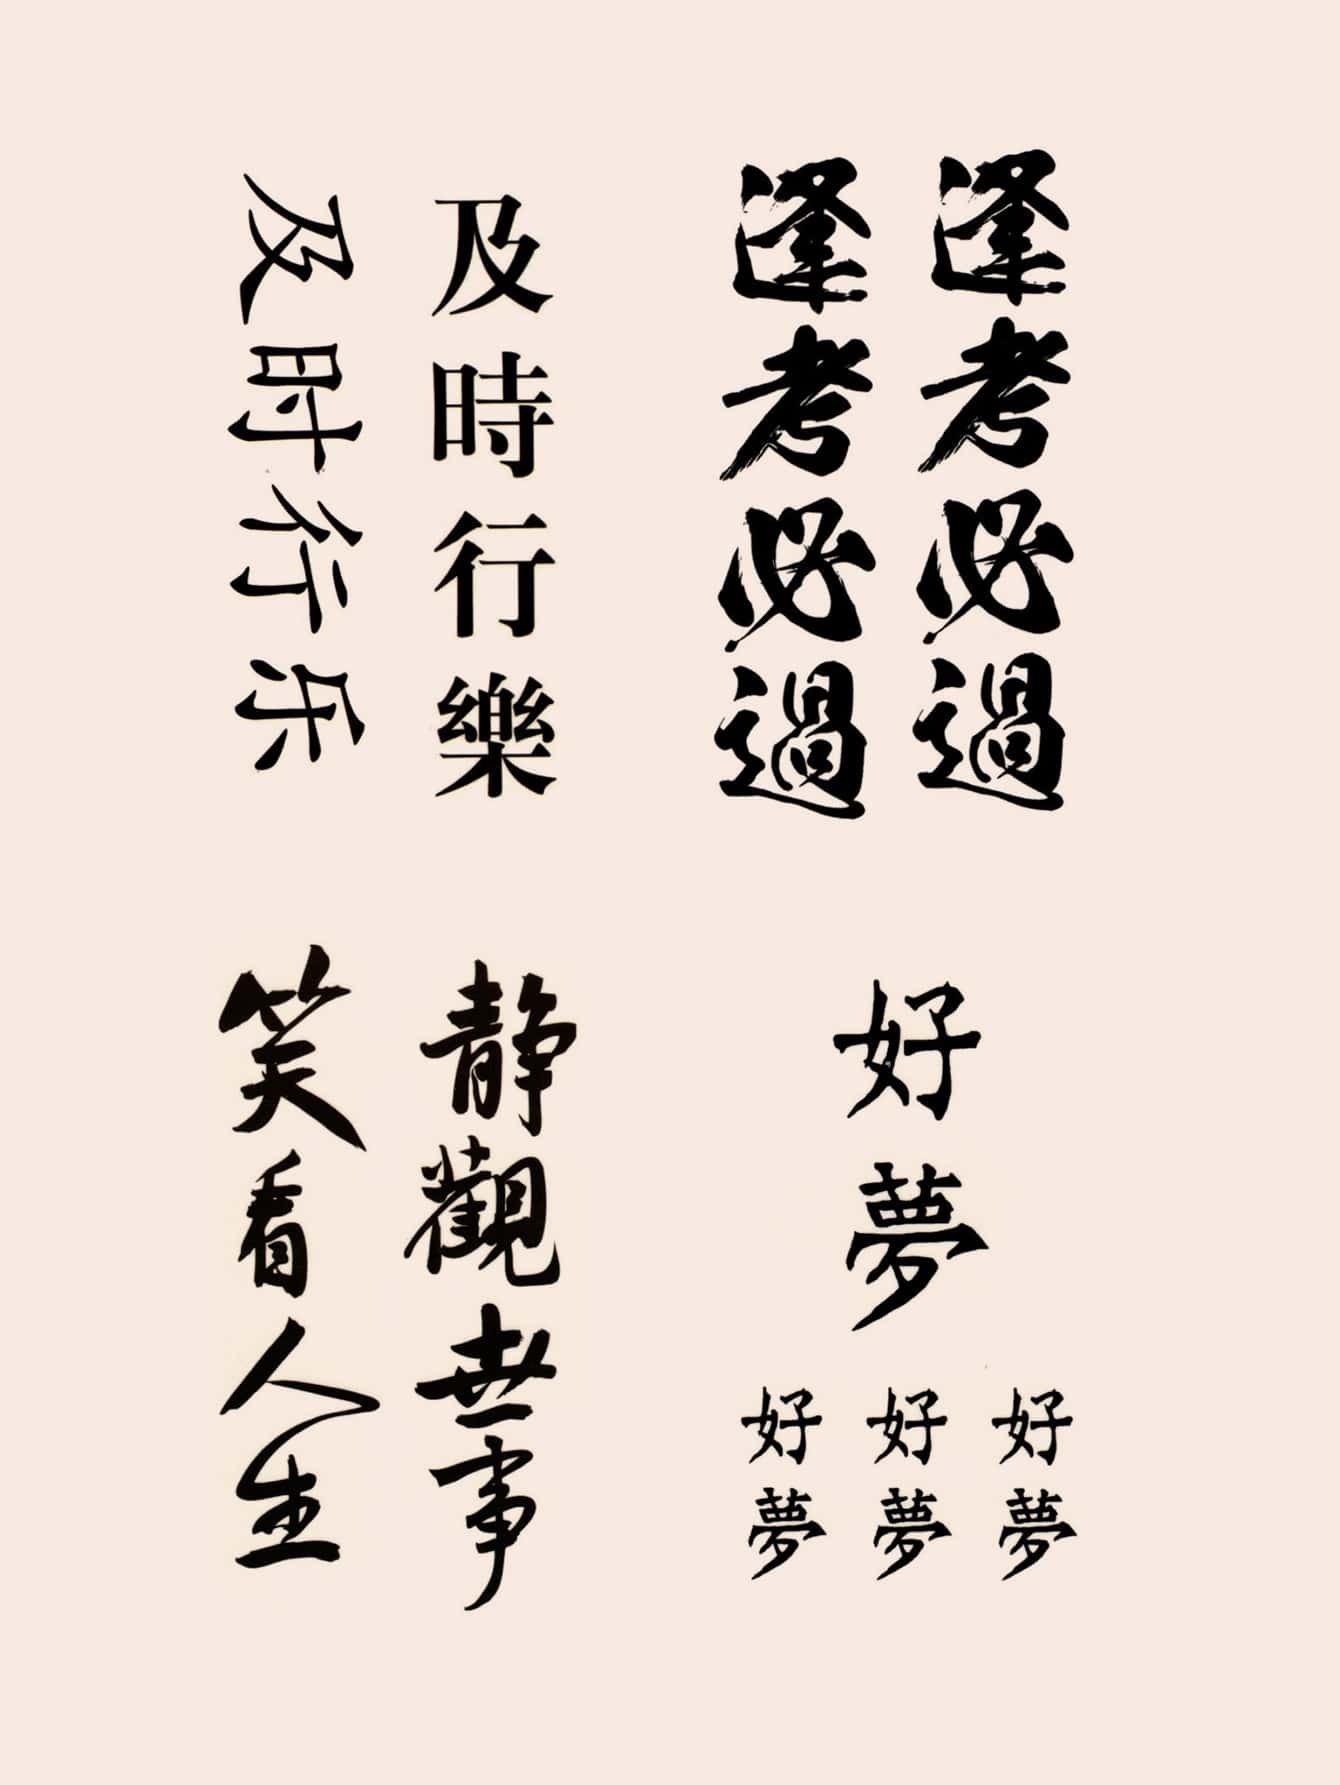 逢考必過
逢考必過
及時行樂
及时行乐
好夢
好夢
好夢
好夢
静觀世事
笑看人生